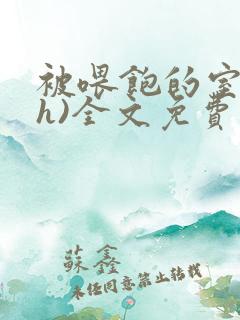 被喂飽的室
h)全文免費
蘇鑫
未经同意禁止转载